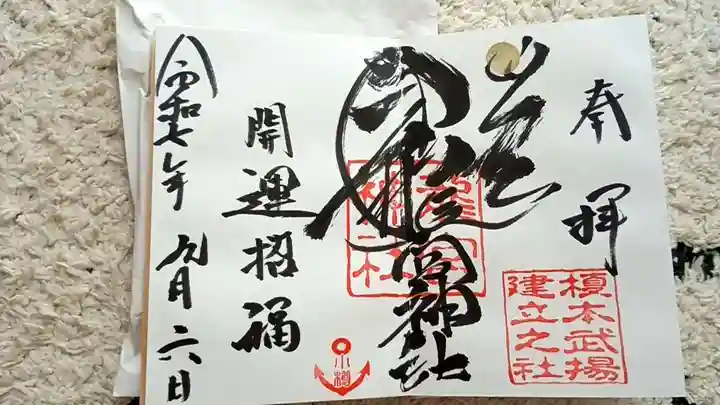 奉拝
榎本武揚
建立之社
龍宮神社
龍宮
神社
開運招福
小樽
令和七年九月六日